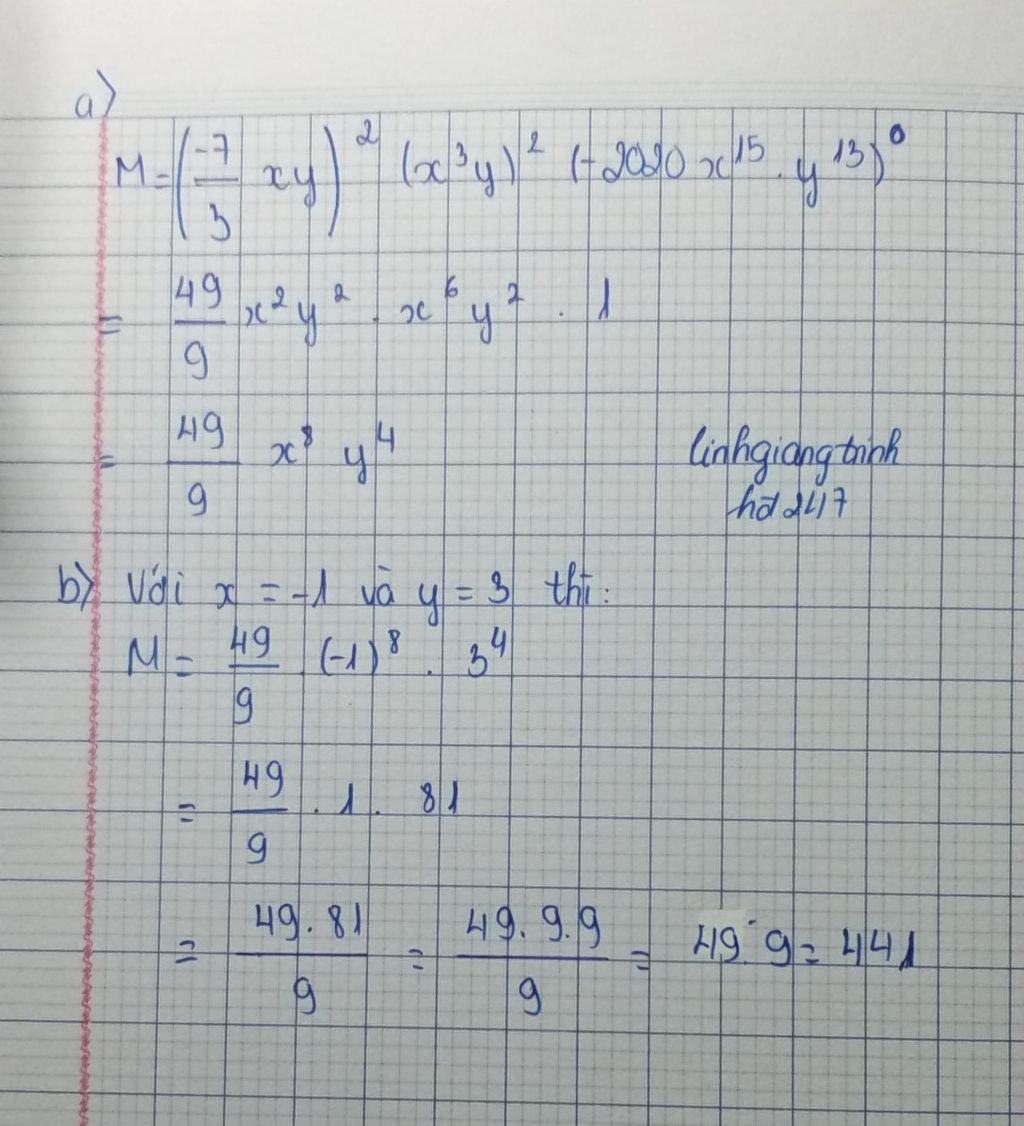 a)
M = (-7/3 xy)² (x³y)² (-2020 x¹⁵ . y¹³)⁰
= 49/9 x²y² . x⁶y² . 1
= 49/9 x⁸ y⁴
linhgiangtrinh
hd247
b) Với x = -1 và y = 3 thì:
M = 49/9 (-1)⁸ . 3⁴
= 49/9 . 1 . 81
= 49.81/9 = 49.9.9/9 = 49.9 = 441